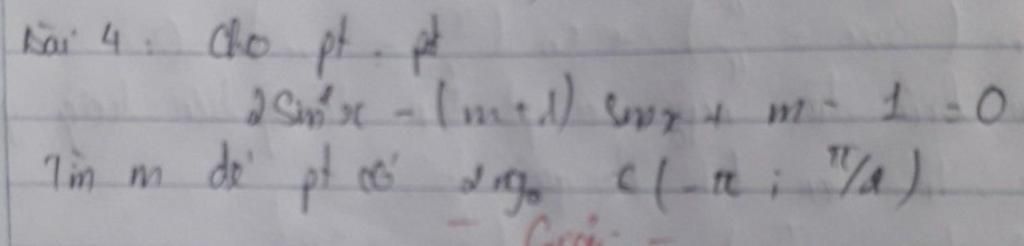 Bài 4 : Cho pt . pt
2sin²x - (m+1) sinx + m - 1 = 0
Tìm m để pt có 2 ngo ∈ (-π ; π/2)